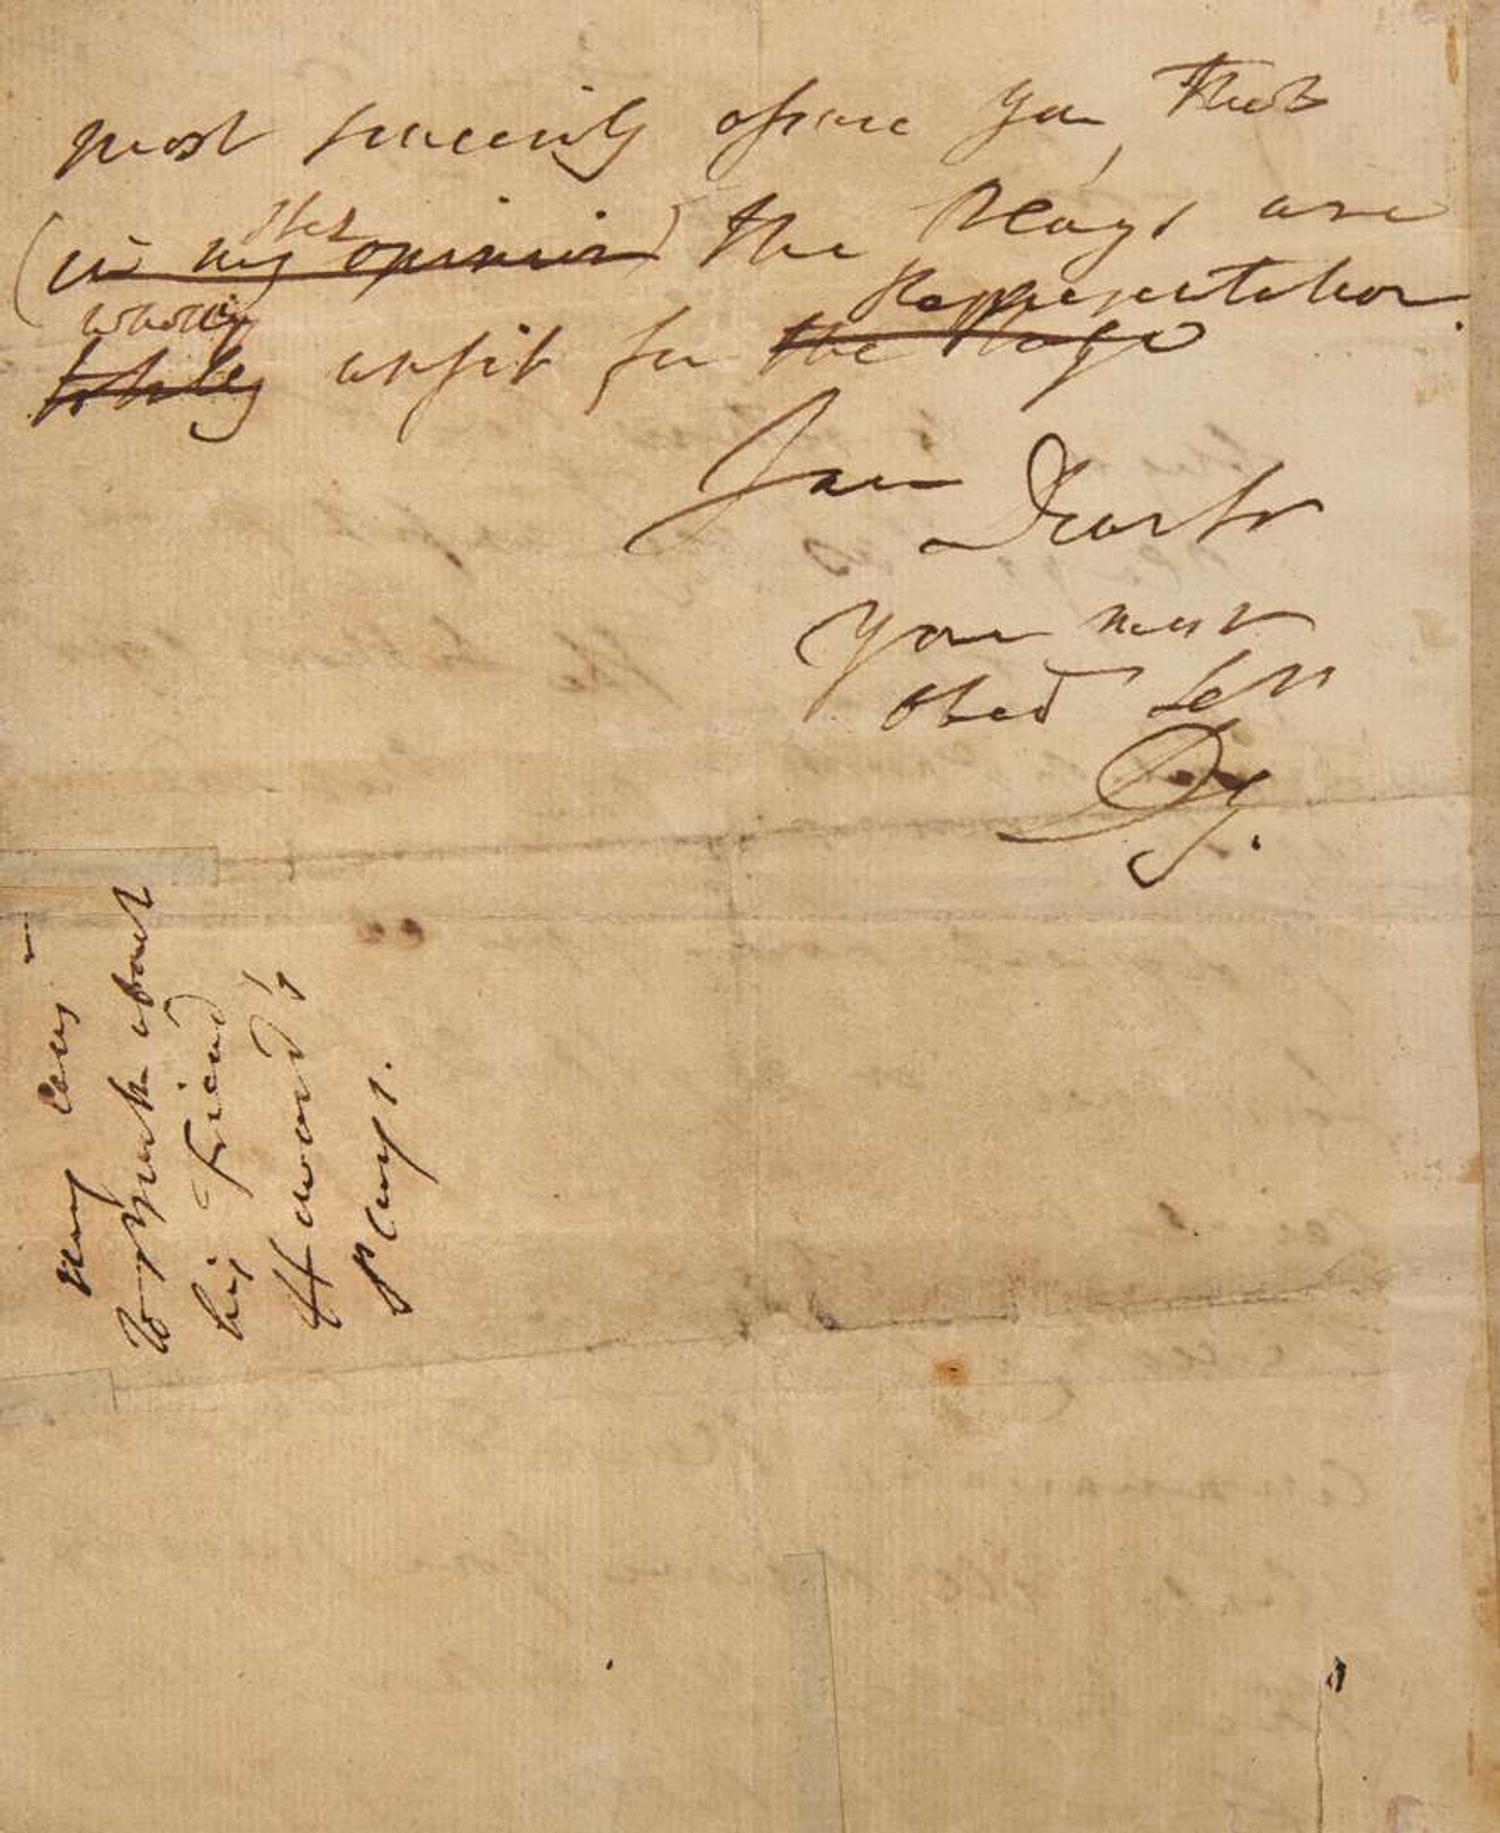 most sincerely assure you, that
(in my opinion) the Plays are
wholly Representation.
totaly unfit for the Stage
I am Dear Sr
Your most
Obedt Sert
DG.
to speak about
his Friend
Haward's
Plays.